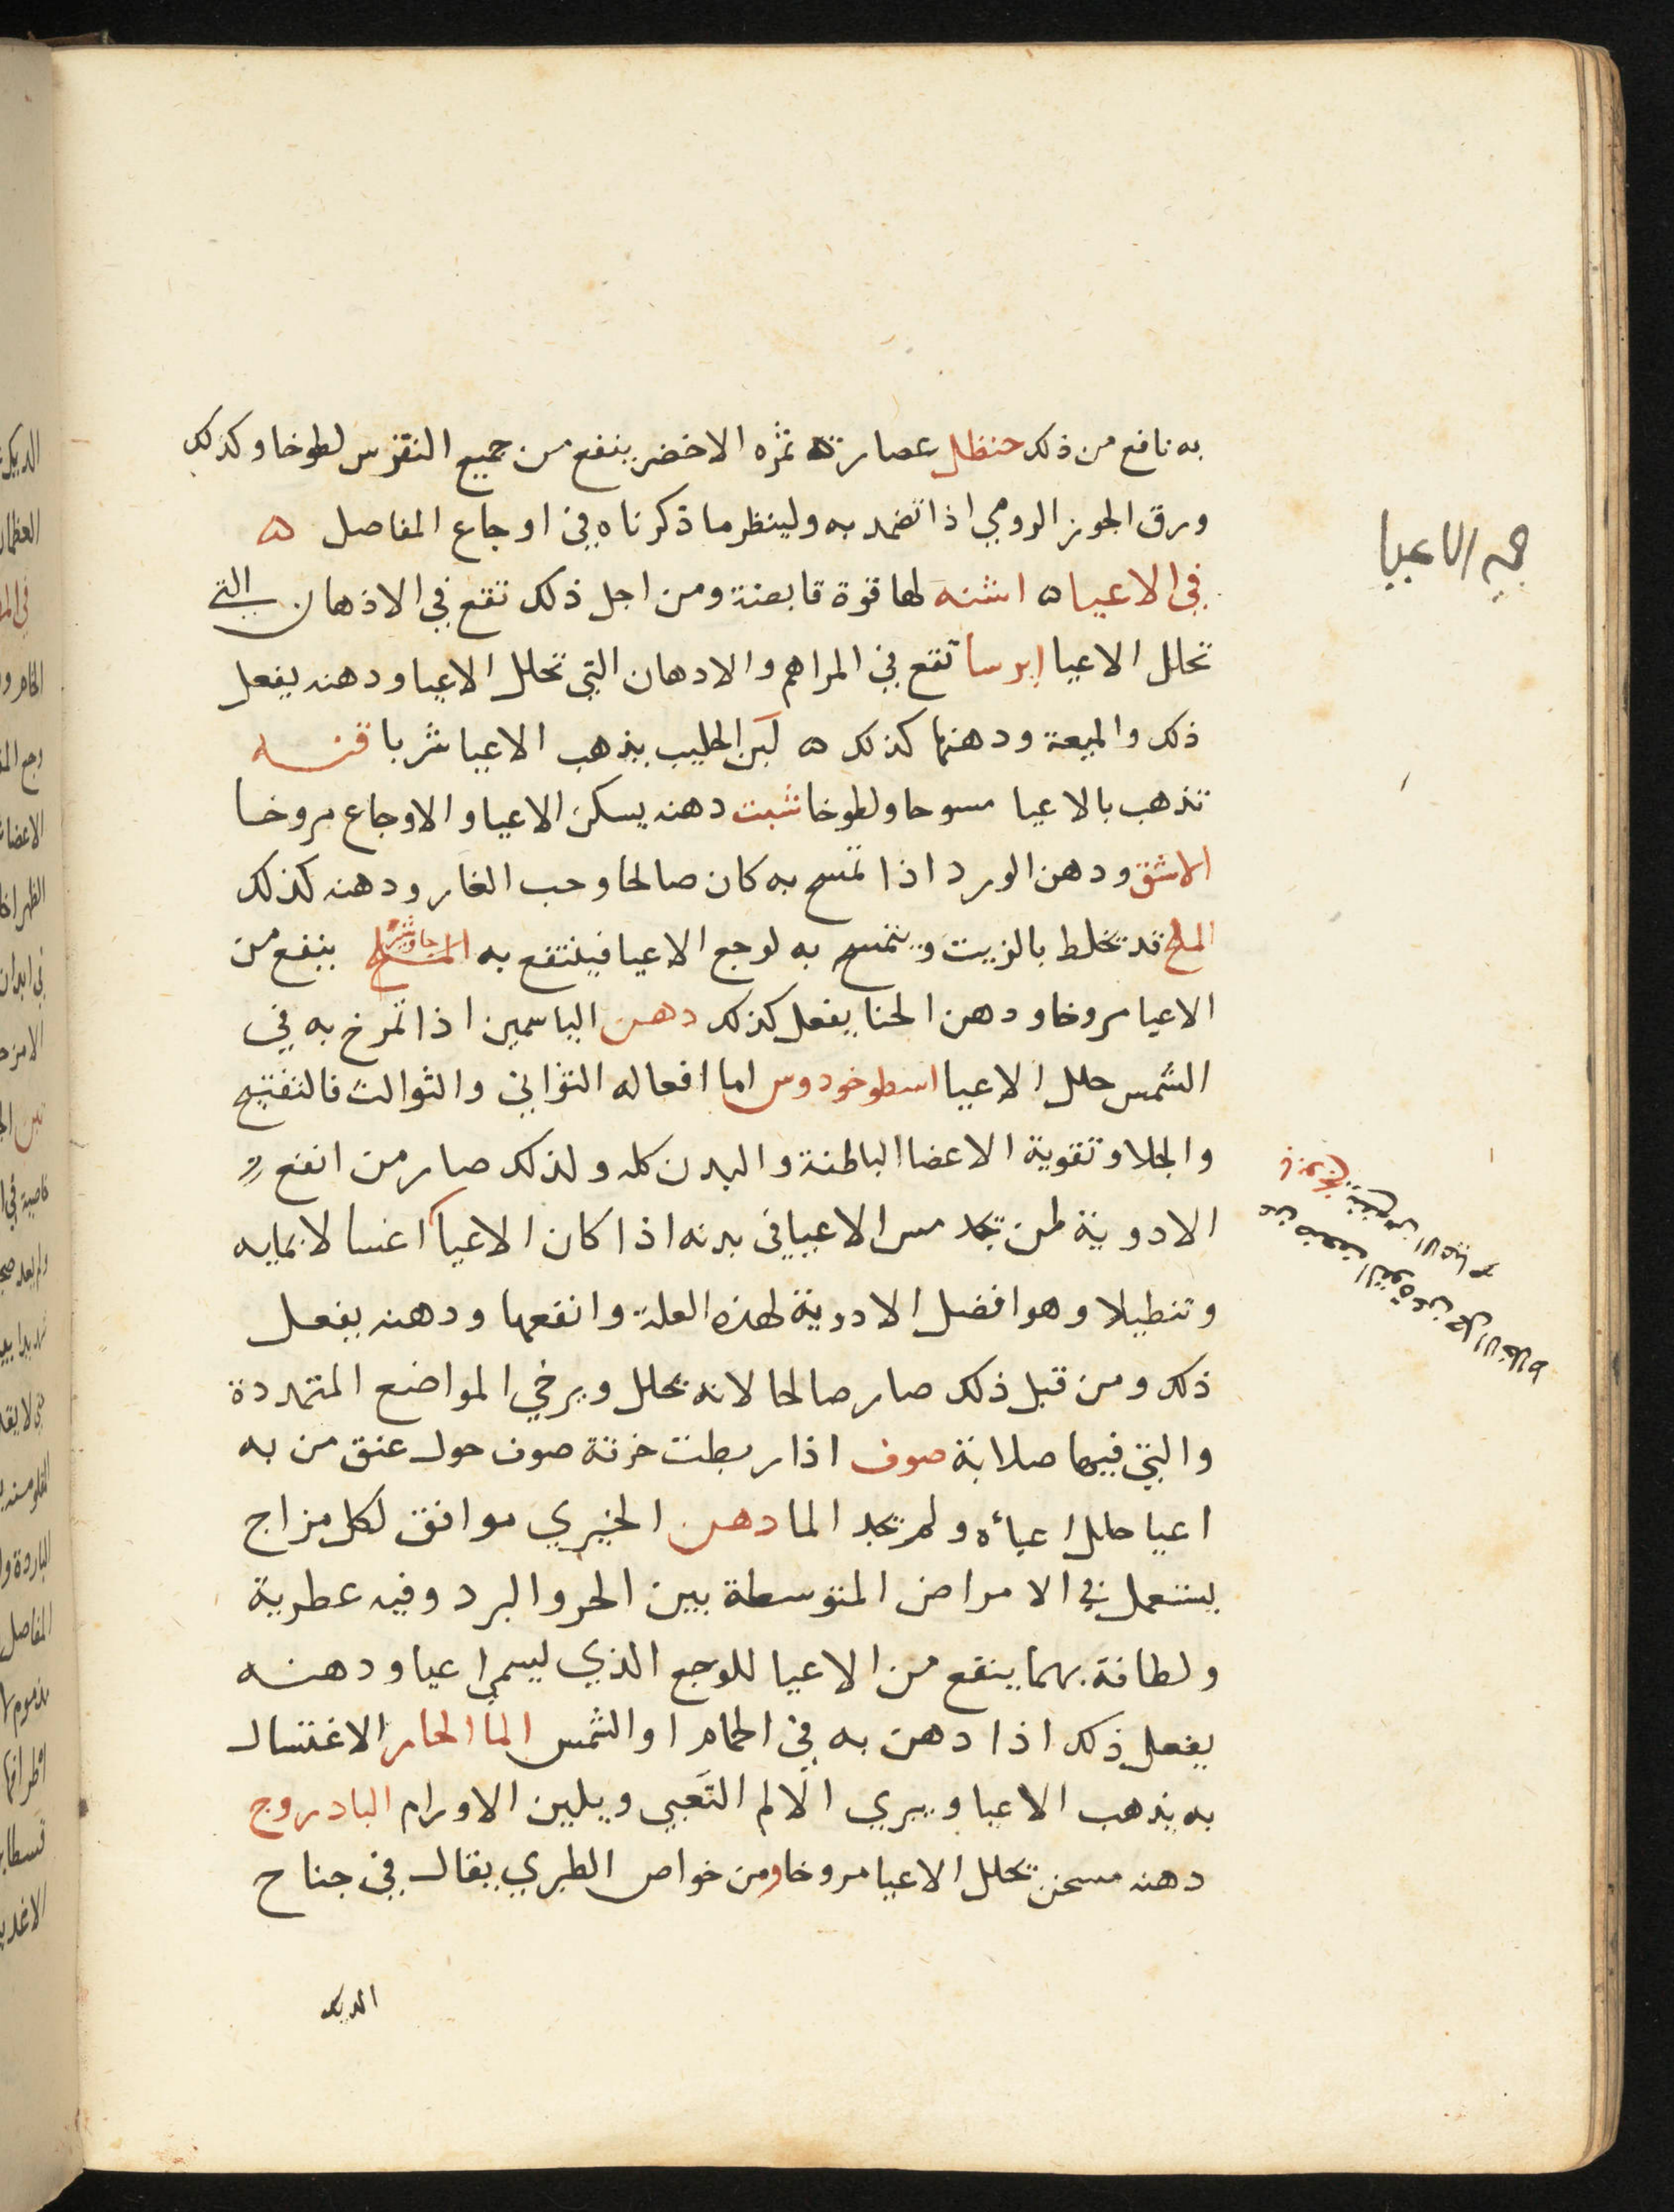 به نافع من ذلك حنظل عصارة ثمره الاخضر ينفع من جميع النقرس لطوخا وكذلك
ورق الجوز الرومي اذا تضمد به ولينظر ما ذكرناه في اوجاع المفاصل ه
في الاعيا ه اشنه لها قوة قابضة ومن اجل ذلك تقع في الاذهان التي
تحلل الاعيا ايرسا تقع في المراهم والادهان التي تحلل الاعيا ودهنه يفعل
ذلك والميعة ودهنها كذلك ه لبن الحليب يذهب الاعيا شربا قنه
تذهب بالاعيا مسوحا ولطوخا شبت دهنه يسكن الاعيا والاوجاع مروخا
الاشق ودهن الورد اذا تمسح به كان صالحا وحب الغار ودهنه كذلك
الملح قد يخلط بالزيت ويتمسح به لوجع الاعيا فينتفع به جاوشير ينفع من
الاعيا مروخا ودهن الحنا يفعل كذلك دهن الياسمين اذا تمرخ به في
الشمس حلل الاعيا اسطوخودوس اما افعاله الثواني والثوالث فالتفتيح
والجلا وتقوية الاعضا الباطنة والبدن كله ولذلك صار من انفع
الادوية لمن يجد مس الاعيا في بدنه اذا كان الاعيا اغتسالا بمايه
وتنطيلا وهو افضل الادوية لهذه العلة وانفعها ودهنه يفعل
ذلك ومن قبل ذلك صار صالحا لانه يحلل ويرخي المواضع المتمددة
والتي فيها صلابة صوف اذا ربطت خرقة صوف حول عنق من به
اعيا حلل اعياءه ولم يجد الما دهن الخيري موافق لكل مزاج
يستعمل في الامراض المتوسطة بين الحر والبرد وفيه عطرية
ولطافة بهما ينفع من الاعيا للوجع الذي ليسمى اعيا ودهنه
يفعل ذلك اذا دهن به في الحمام او الشمس الما الحار الاغتسال
به يذهب الاعيا ويبري الالم التعبي ويلين الاورام البادروج
دهنه مسخن تحلل الاعيا مروخا ومن خواص الطبري يقال في جناح
الديك
الاعيا
ينفع من الاعيا